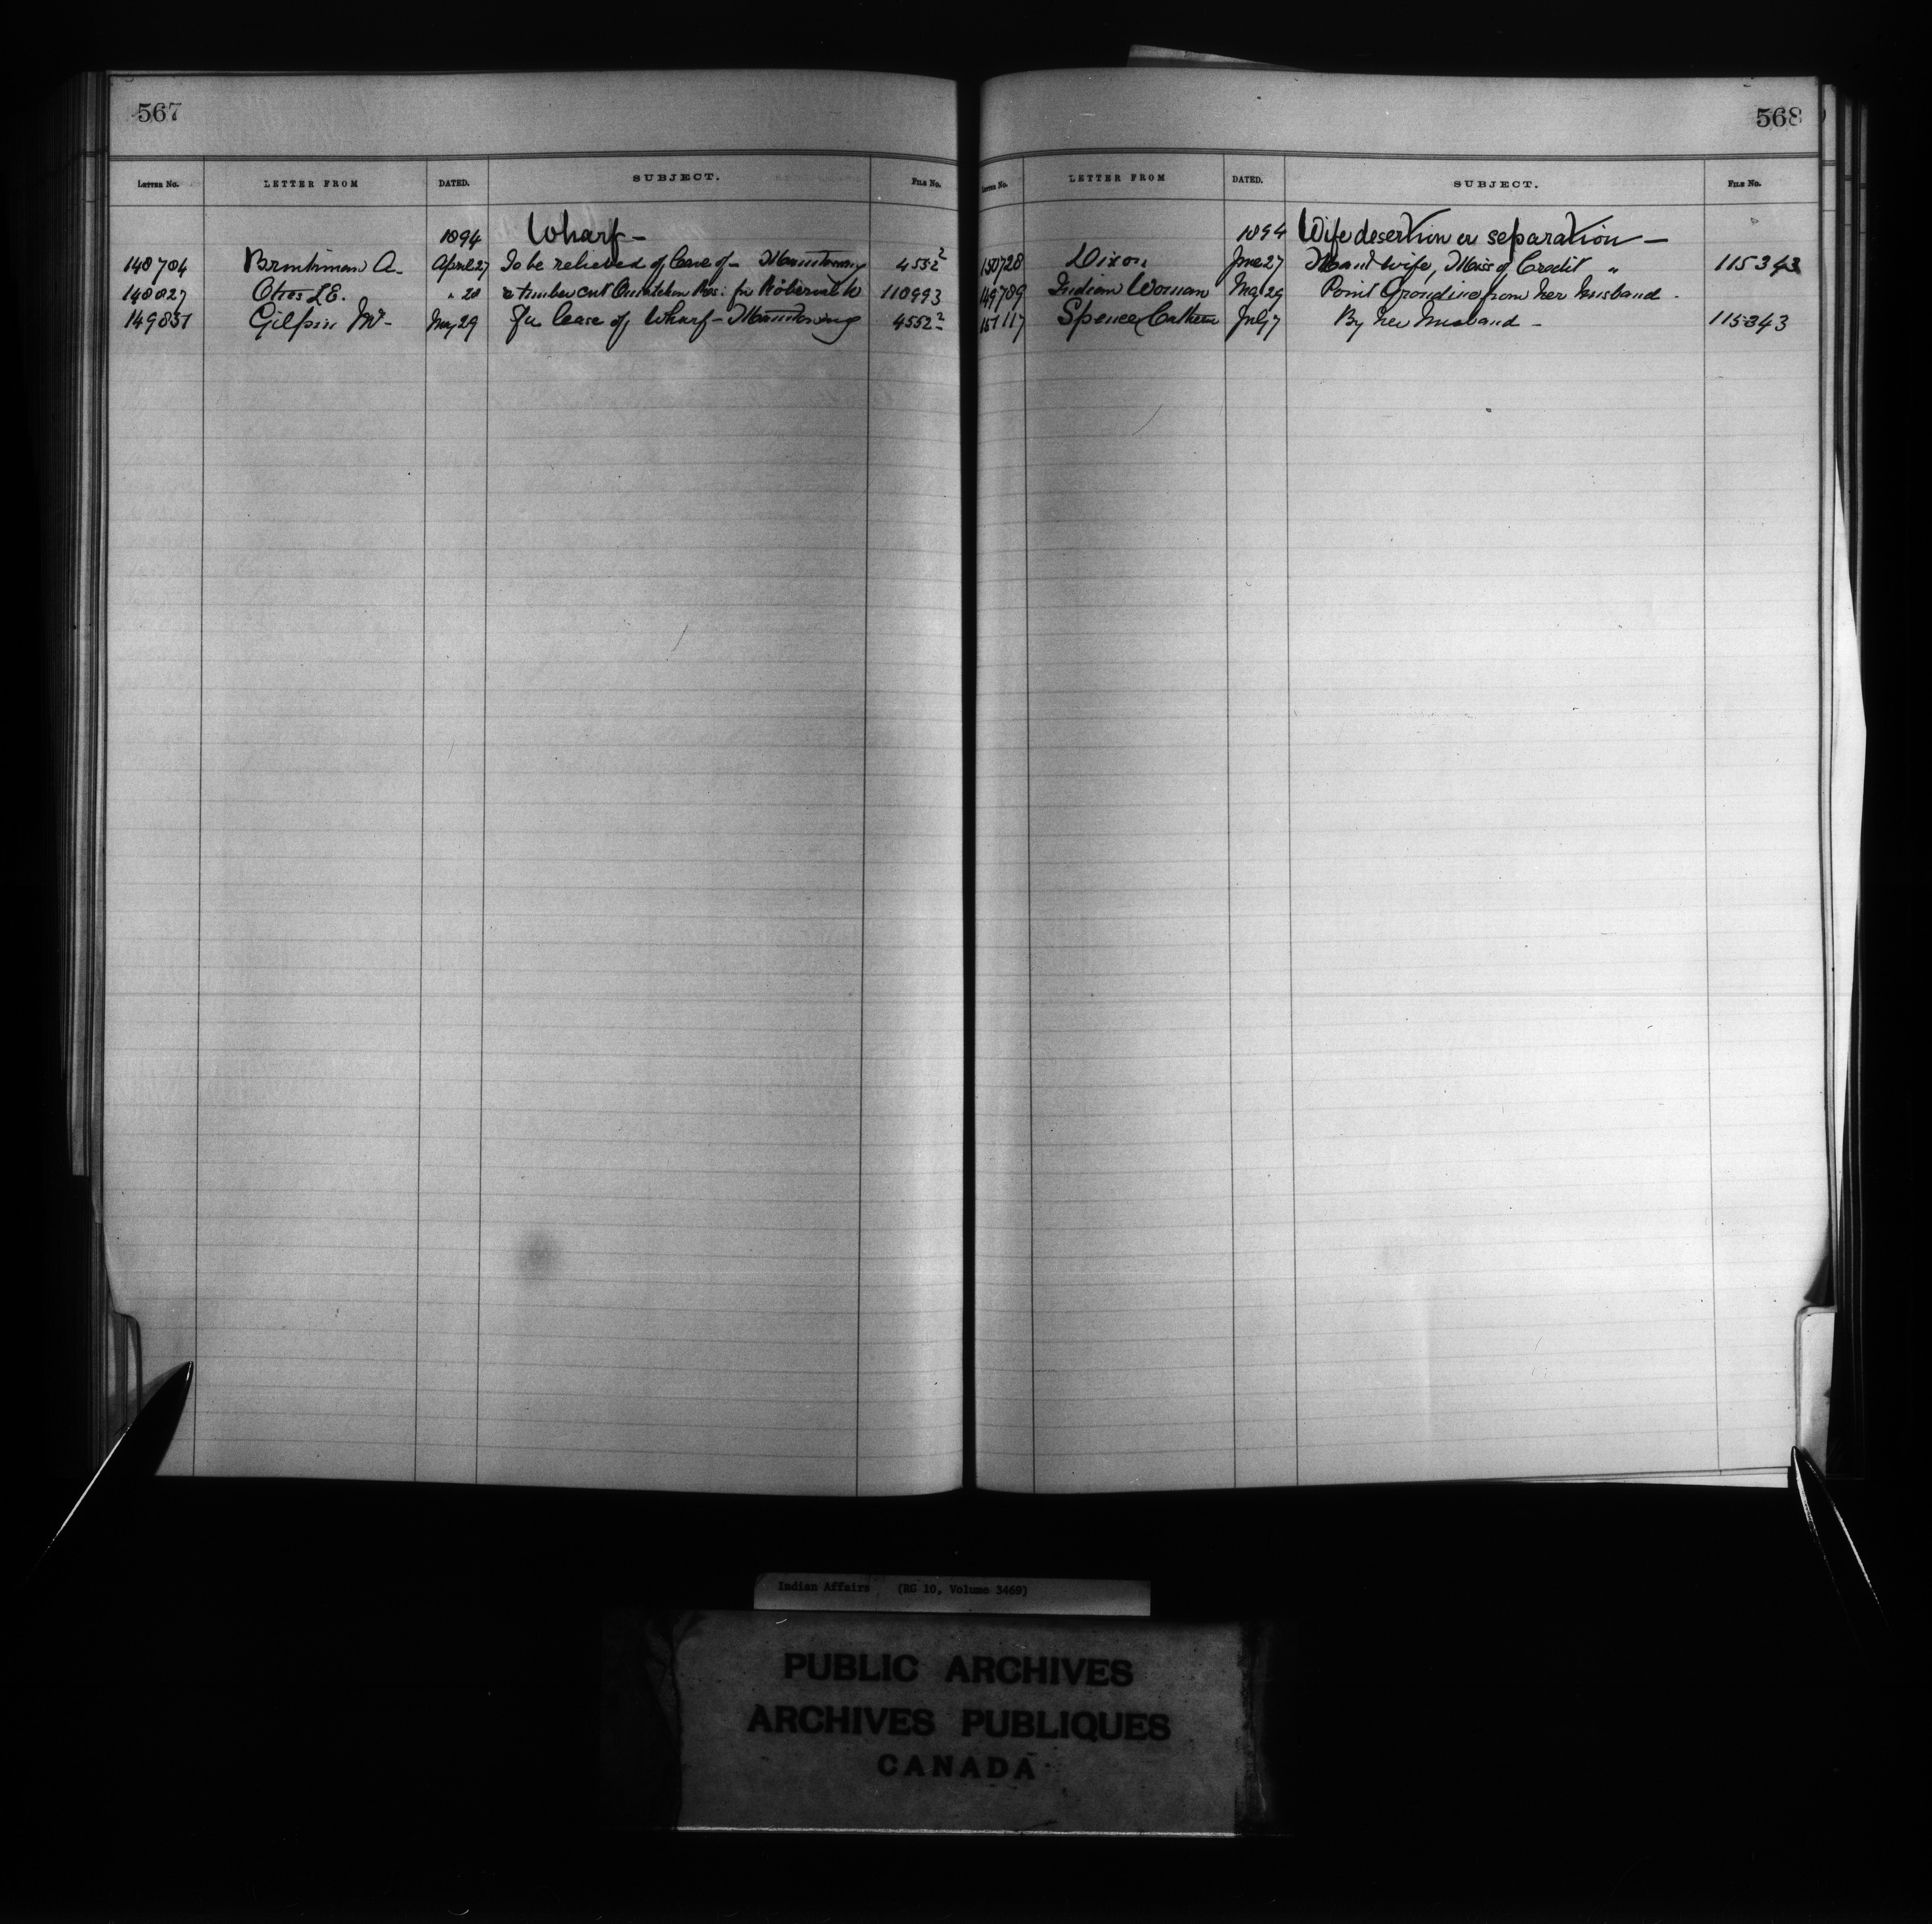 567
LETTER No. LETTER FROM DATED. SUBJECT. FILE No.
1894 Wharf –
148704 A. April 27 To be relieved of lease of – Manitowaning 4552²
148827 Otis L.E. " 28 timber cut Ouiatchouan Res: for Roberval W 118993
149851 Gilpin W – May 29 For lease of Wharf – Manitowaning 4552²
568
LETTER No. LETTER FROM DATED. SUBJECT. FILE No.
1894 Wife desertion or separation –
150728 Dixon June 27 and wife, Miss of Credit " 115343
149789 Indian Woman May 29 Point Grondine from her husband -
151117 Spence Catherine July 7 By her husband – 115343
Indian Affairs (RG 10, Volume 3469)
PUBLIC ARCHIVES
ARCHIVES PUBLIQUES
CANADA